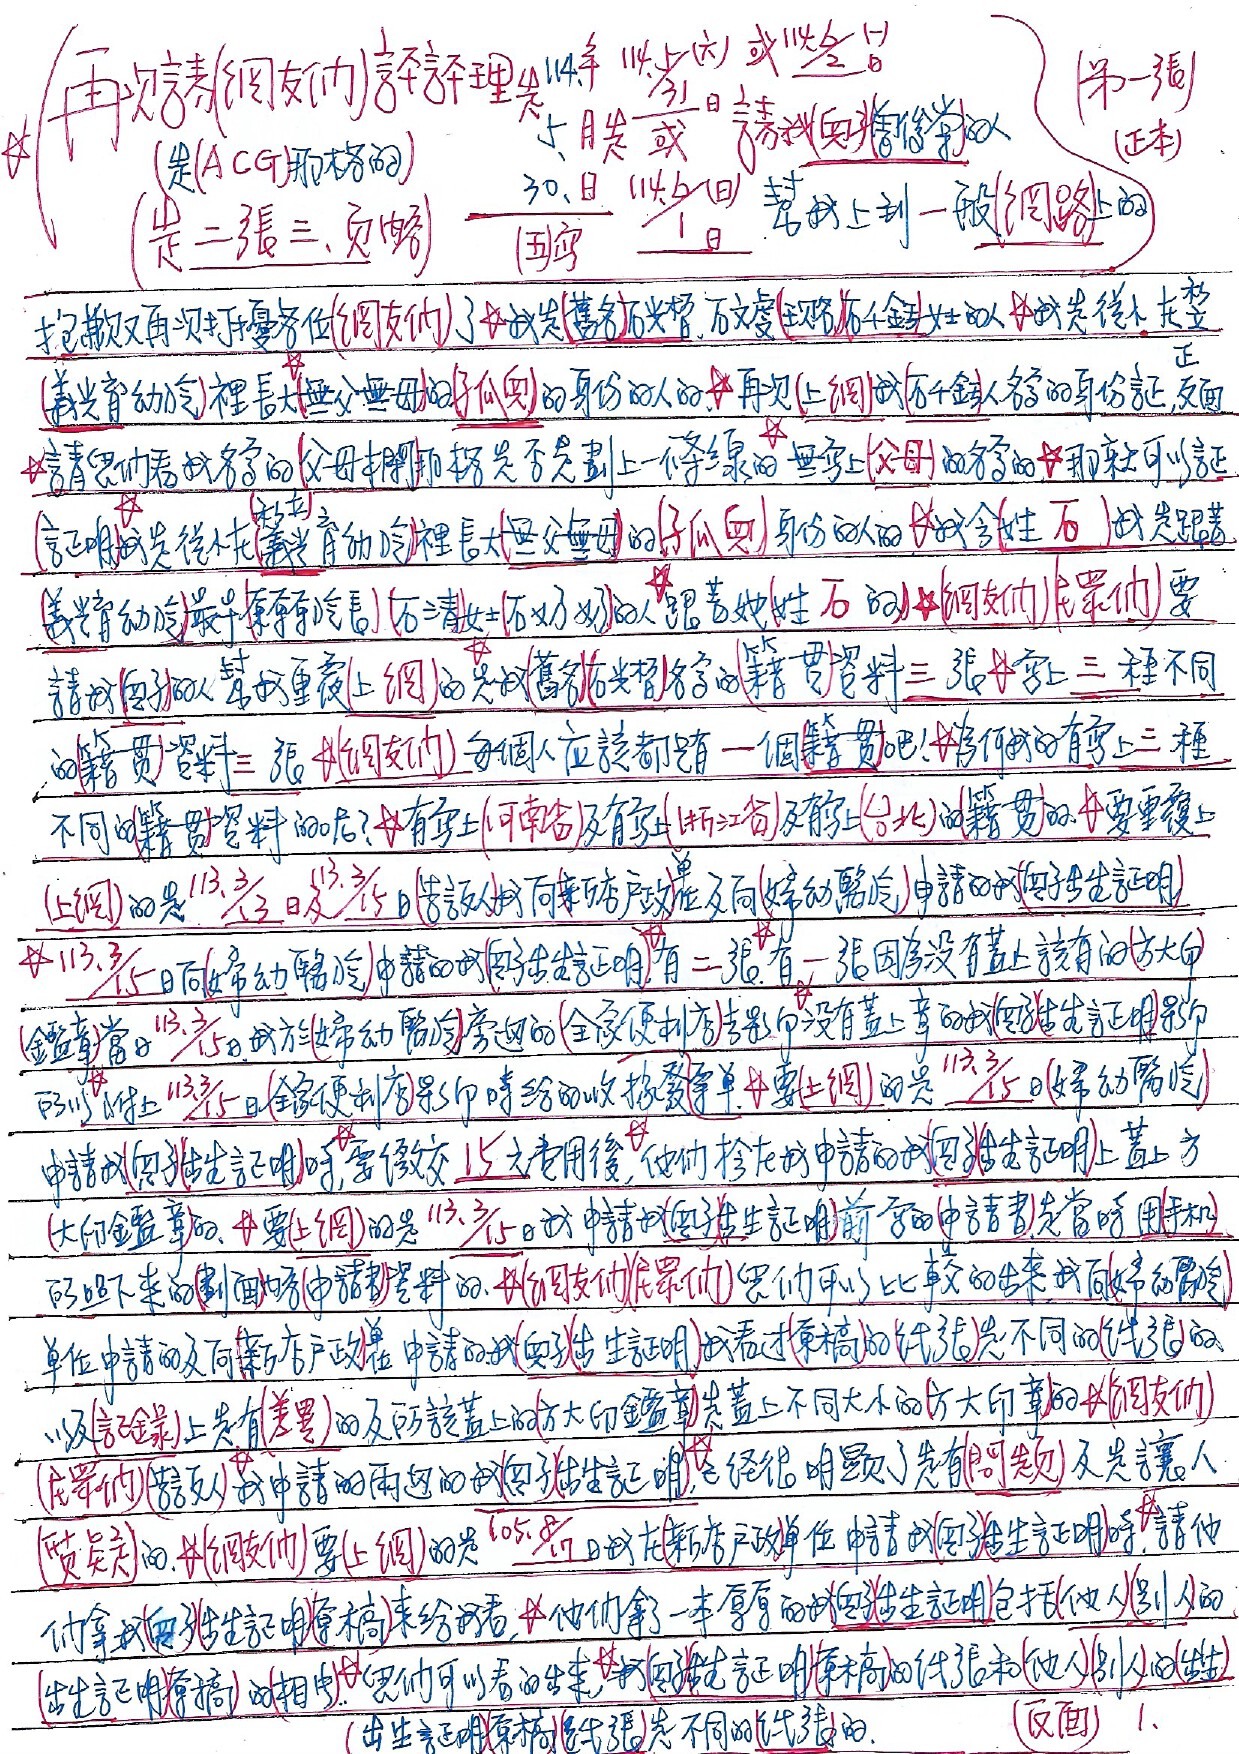 再次請(網友們)評評理 是114年 114.5/31(六)日 或114.6/2(一)日 (第一張)
(是(ACG)那格的) 5月是 或 請我(兒子)(曾俊榮)的人 (正本)
(是二張三頁喀) 30.日(五)寫 114.6/1(日)日 幫我上到一般(網路)上的
抱歉又再次打擾各位(網友們)了☆我是(舊名)石光智.石文虔(現名)石千金女士的人☆我是從小在整
(義光育幼院)裡長大(無父無母)的(子瓜兒)的身份的人的.☆再次(上網)我(石千金)人名字的身份証,正反面
☆請您們看我名字的(父母本欄)那格是否是劃上一條線的☆無寫上(父母)的名字的☆那就可以証
(証明)我是從小在(私立)(義光育幼院)裡長大(無父無母)的(子瓜兒)身份的人的☆我會(姓 石)我是跟著
(義光育幼院)最早(原原院長)(石清女士(石奶奶)的人☆跟著她(姓 石 的)☆(網友們)(民眾們)要
請我(兒子)的人幫我重覆(上網)的☆是我(舊名)石光智)名字的(籍貫)資料三張☆寫上三種不同
的(籍貫)資料三張☆(網友們)每個人應該都只有一個(籍貫)吧!☆為何我的有寫上三種
不同的(籍貫)資料的呢?☆有寫上(河南省)及有寫上(浙江省)及有寫上(台北)的(籍貫)的.☆要重覆上
(上網)的是113.3/13日及113.3/15日(當該人)我向(新店戶政)單位及向(婦幼醫院)申請的我(兒子)出生証明)
☆113.3/15日向(婦幼醫院)申請的我(兒子)出生証明)☆有二張☆有一張因為沒有蓋上該有的(方大印
(鑑章)當日113.3/15日我於(婦幼醫院)旁邊的(全家便利店)去影印☆沒有蓋上章的我(兒子)出生証明)影印
所以☆附上113.3/15日(全家便利店)影印時給的收據發單單.☆要(上網)的是113.3/15日(婦幼醫院)
申請我(兒子)出生証明)時,☆要繳交15元費用後,☆他們才在我申請的我(兒子)出生証明)上蓋上方
(大印鑑章)的.☆要(上網)的是113.3/15日我申請我(兒子)出生証明)前寫的(申請書)是當時用手机)
所照下來的(劃面)內容(申請書)資料的.☆(網友們)(民眾們)您們可以比較的出來我向(婦幼醫院)
單位申請的及向(新店戶政)單位申請的我(兒子)出生証明)我看过(原稿)的(紙張)是不同的(紙張)的
以及(記錄)上是有(差異)的及所該蓋上的(方大印鑑章)是蓋上不同大小的(方大印章)的☆(網友們)
(民眾們)(當該人)☆我申請的兩邊的我(兒子)出生証明)☆已經很明顯了是有(問題)及是讓人
(質疑)的.☆(網友們)要(上網)的是105.8/17日我在(新店戶政)單位申請我(兒子)出生証明)時,☆請他
們拿我(兒子)出生証明)原稿)來給我看,☆他們拿了一本厚厚的我(兒子)出生証明)包括(他人)(別人)的
(出生証明)原稿)的相片.☆您們可以看的出來,☆我(兒子)出生証明)原稿)的紙張和(他人)別人)的(出生)
(出生証明)原稿)紙張)是不同的(紙張)的. (反面) 1.